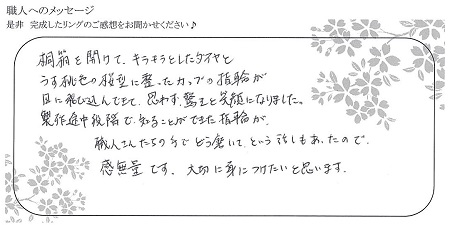 職人へのメッセージ
是非 完成したリングのご感想をお聞かせください♪
桐箱を開けて、キラキラとしたダイヤと
うす桃色の桜型に整ったカップの指輪が
目に飛び込んできて、思わず驚きと笑顔になりました。
製作途中段階で、知ることができた指輪が、
職人さんたちの手でどう磨いて、という話しもあったので、
感無量です。大切に身につけたいと思います。